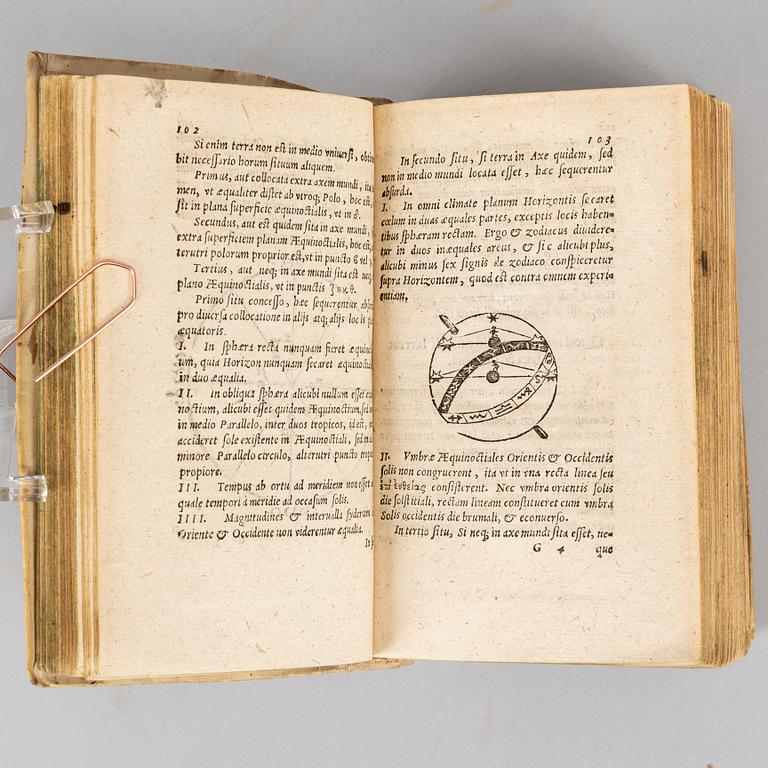 102
Si enim terra non est in medio vniversi, obtin
bit necessario horum situum aliquem.
Primus, aut collocata extra axem mundi, ita
men, vt æqualiter distet ab vtroq; Polo, hoc est,
sit in plana superficie æquinoctialis, vt in
Secundus, aut est quidem sita in axe mundi,
extra superficiem planam Æquinoctialis, hoc est,
terutri polorum proprior est, vt in puncto vel
Tertius, aut neq; in axe mundi sita est neq
plano Æquinoctialis, vt in punctis
Primo situ concesso, hæc sequerentur absur
pro diversa collocatione in alijs atq; alijs locis
æquatoris.
I. In sphæra recta nunquam fieret æquinoct
um, quia Horizon nunquam secaret æquinocti
in duo æqualia.
II. In obliqua sphæra alicubi nullum esset
noctium, alicubi esset quidem Æquinoctium, sed
in medio Parallelo, inter duos tropicos, id est,
accideret sole existente in Æquinoctiali, sed
minore Parallelo circulo, alterutri puncto
propiore.
III. Tempus ab ortu ad meridiem non esset
quale tempori à meridie ad occasum solis.
IIII. Magnitudines & intervalla syderum
Oriente & Occidente non viderentur æqualia.
In
103
In secundo situ, Si terra in Axe quidem, sed
non in medio mundi locata esset, hæc sequerentur
absurda.
I. In omni climate planum Horizontis secaret
cœlum in duas æquales partes, exceptis locis haben-
tibus sphæram rectam. Ergo & zodiacus dividere-
tur in duos inæquales arcus, & sic alicubi plus,
alicubi minus sex signis de zodiaco conspiceretur
supra Horizontem, quod est contra omnem experi-
entiam.
II. Vmbræ Æquinoctiales Orientis & Occidentis
solis non congruerent, ita vt in vna recta linea seu
ἐπ᾽ ἐυθείας consisterent. Nec vmbra orientis solis
die solstitiali, rectam lineam constitueret cum vmbra
Solis occidentis die brumali, & econverso.
In tertio situ, Si neq; in axe mundi sita esset, ne-
G 4 que